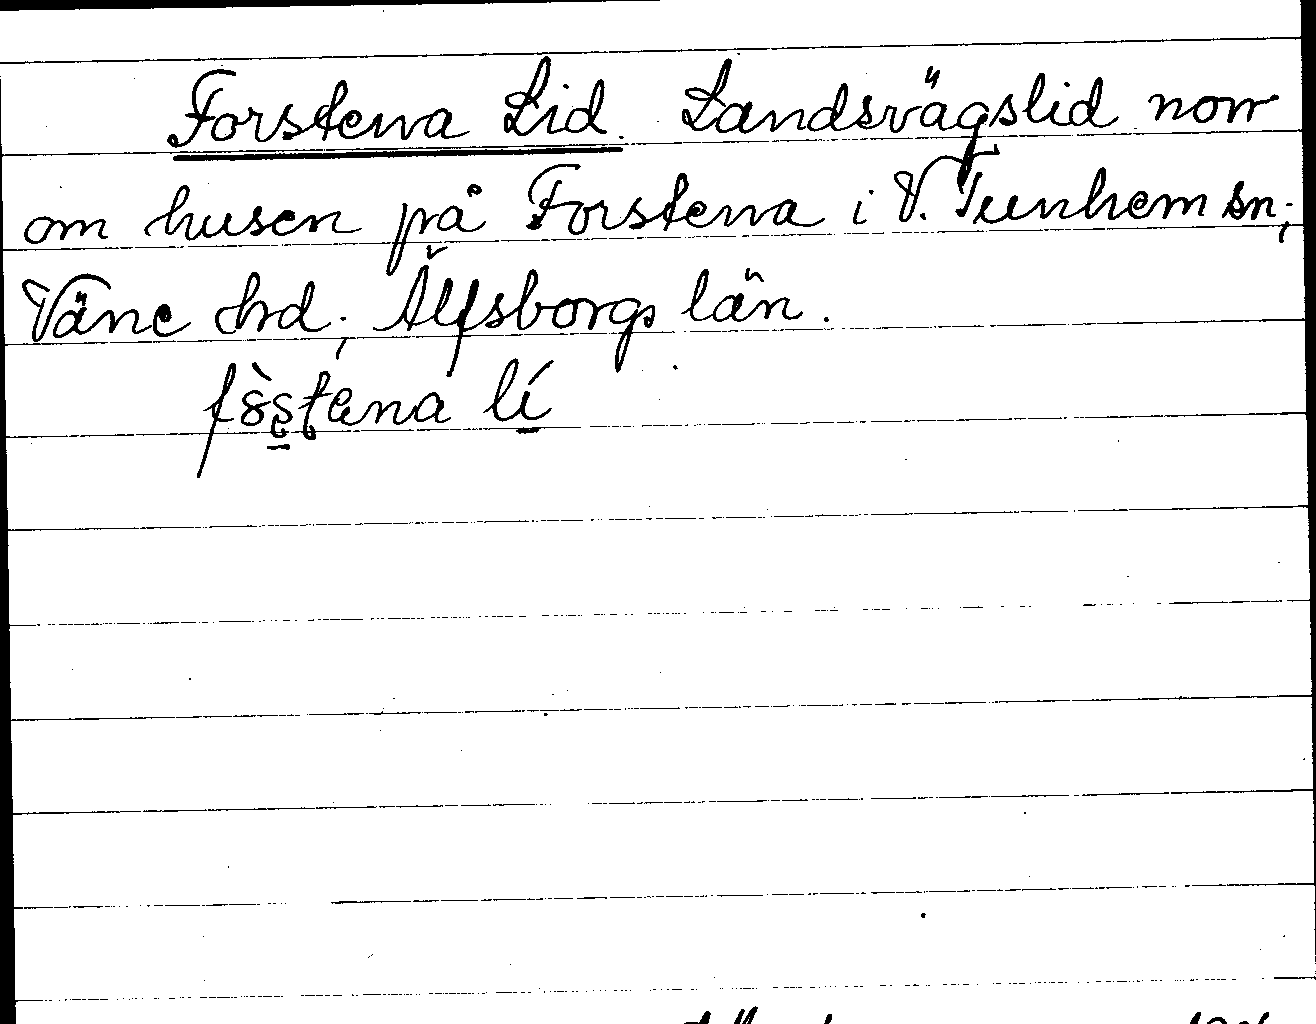 Forstena Lid. Landsvägslid norr
om husen på Forstena i V. Tunhem sn;
Väne hrd; Älfsborgs län.
lí